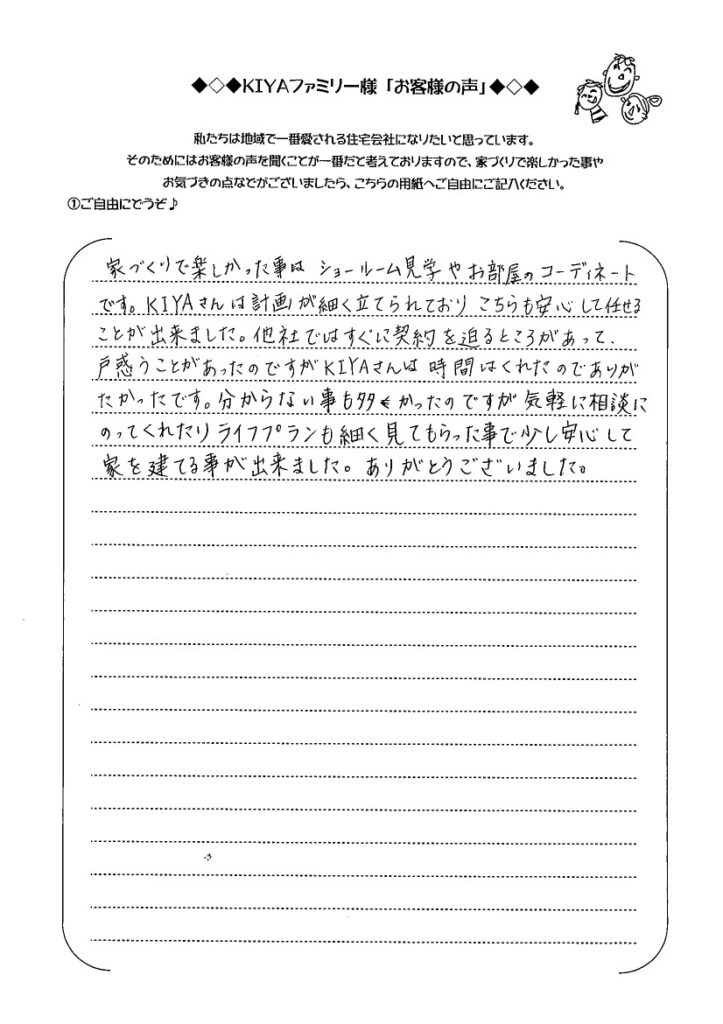 ◆◇◆KIYAファミリー様「お客様の声」◆◇◆
私たちは地域で一番愛される住宅会社になりたいと思っています。
そのためにはお客様の声を聞くことが一番だと考えておりますので、家づくりで楽しかった事や
お気づきの点などがございましたら、こちらの用紙へご自由にご記入ください。
①ご自由にどうぞ♪
家づくりで楽しかった事は ショールーム見学やお部屋のコーディネート
です。KIYAさんは計画が細く立てられており こちらも安心して任せる
ことが出来ました。他社ではすぐに契約を迫るところがあって、
戸惑うことがあったのですがKIYAさんは時間はくれたのでありが
たかったです。分からない事も多くかったのですが気軽に相談に
のってくれたりライフプランも細く見てもらった事で少し安心して
家を建てる事が出来ました。ありがとうございました。